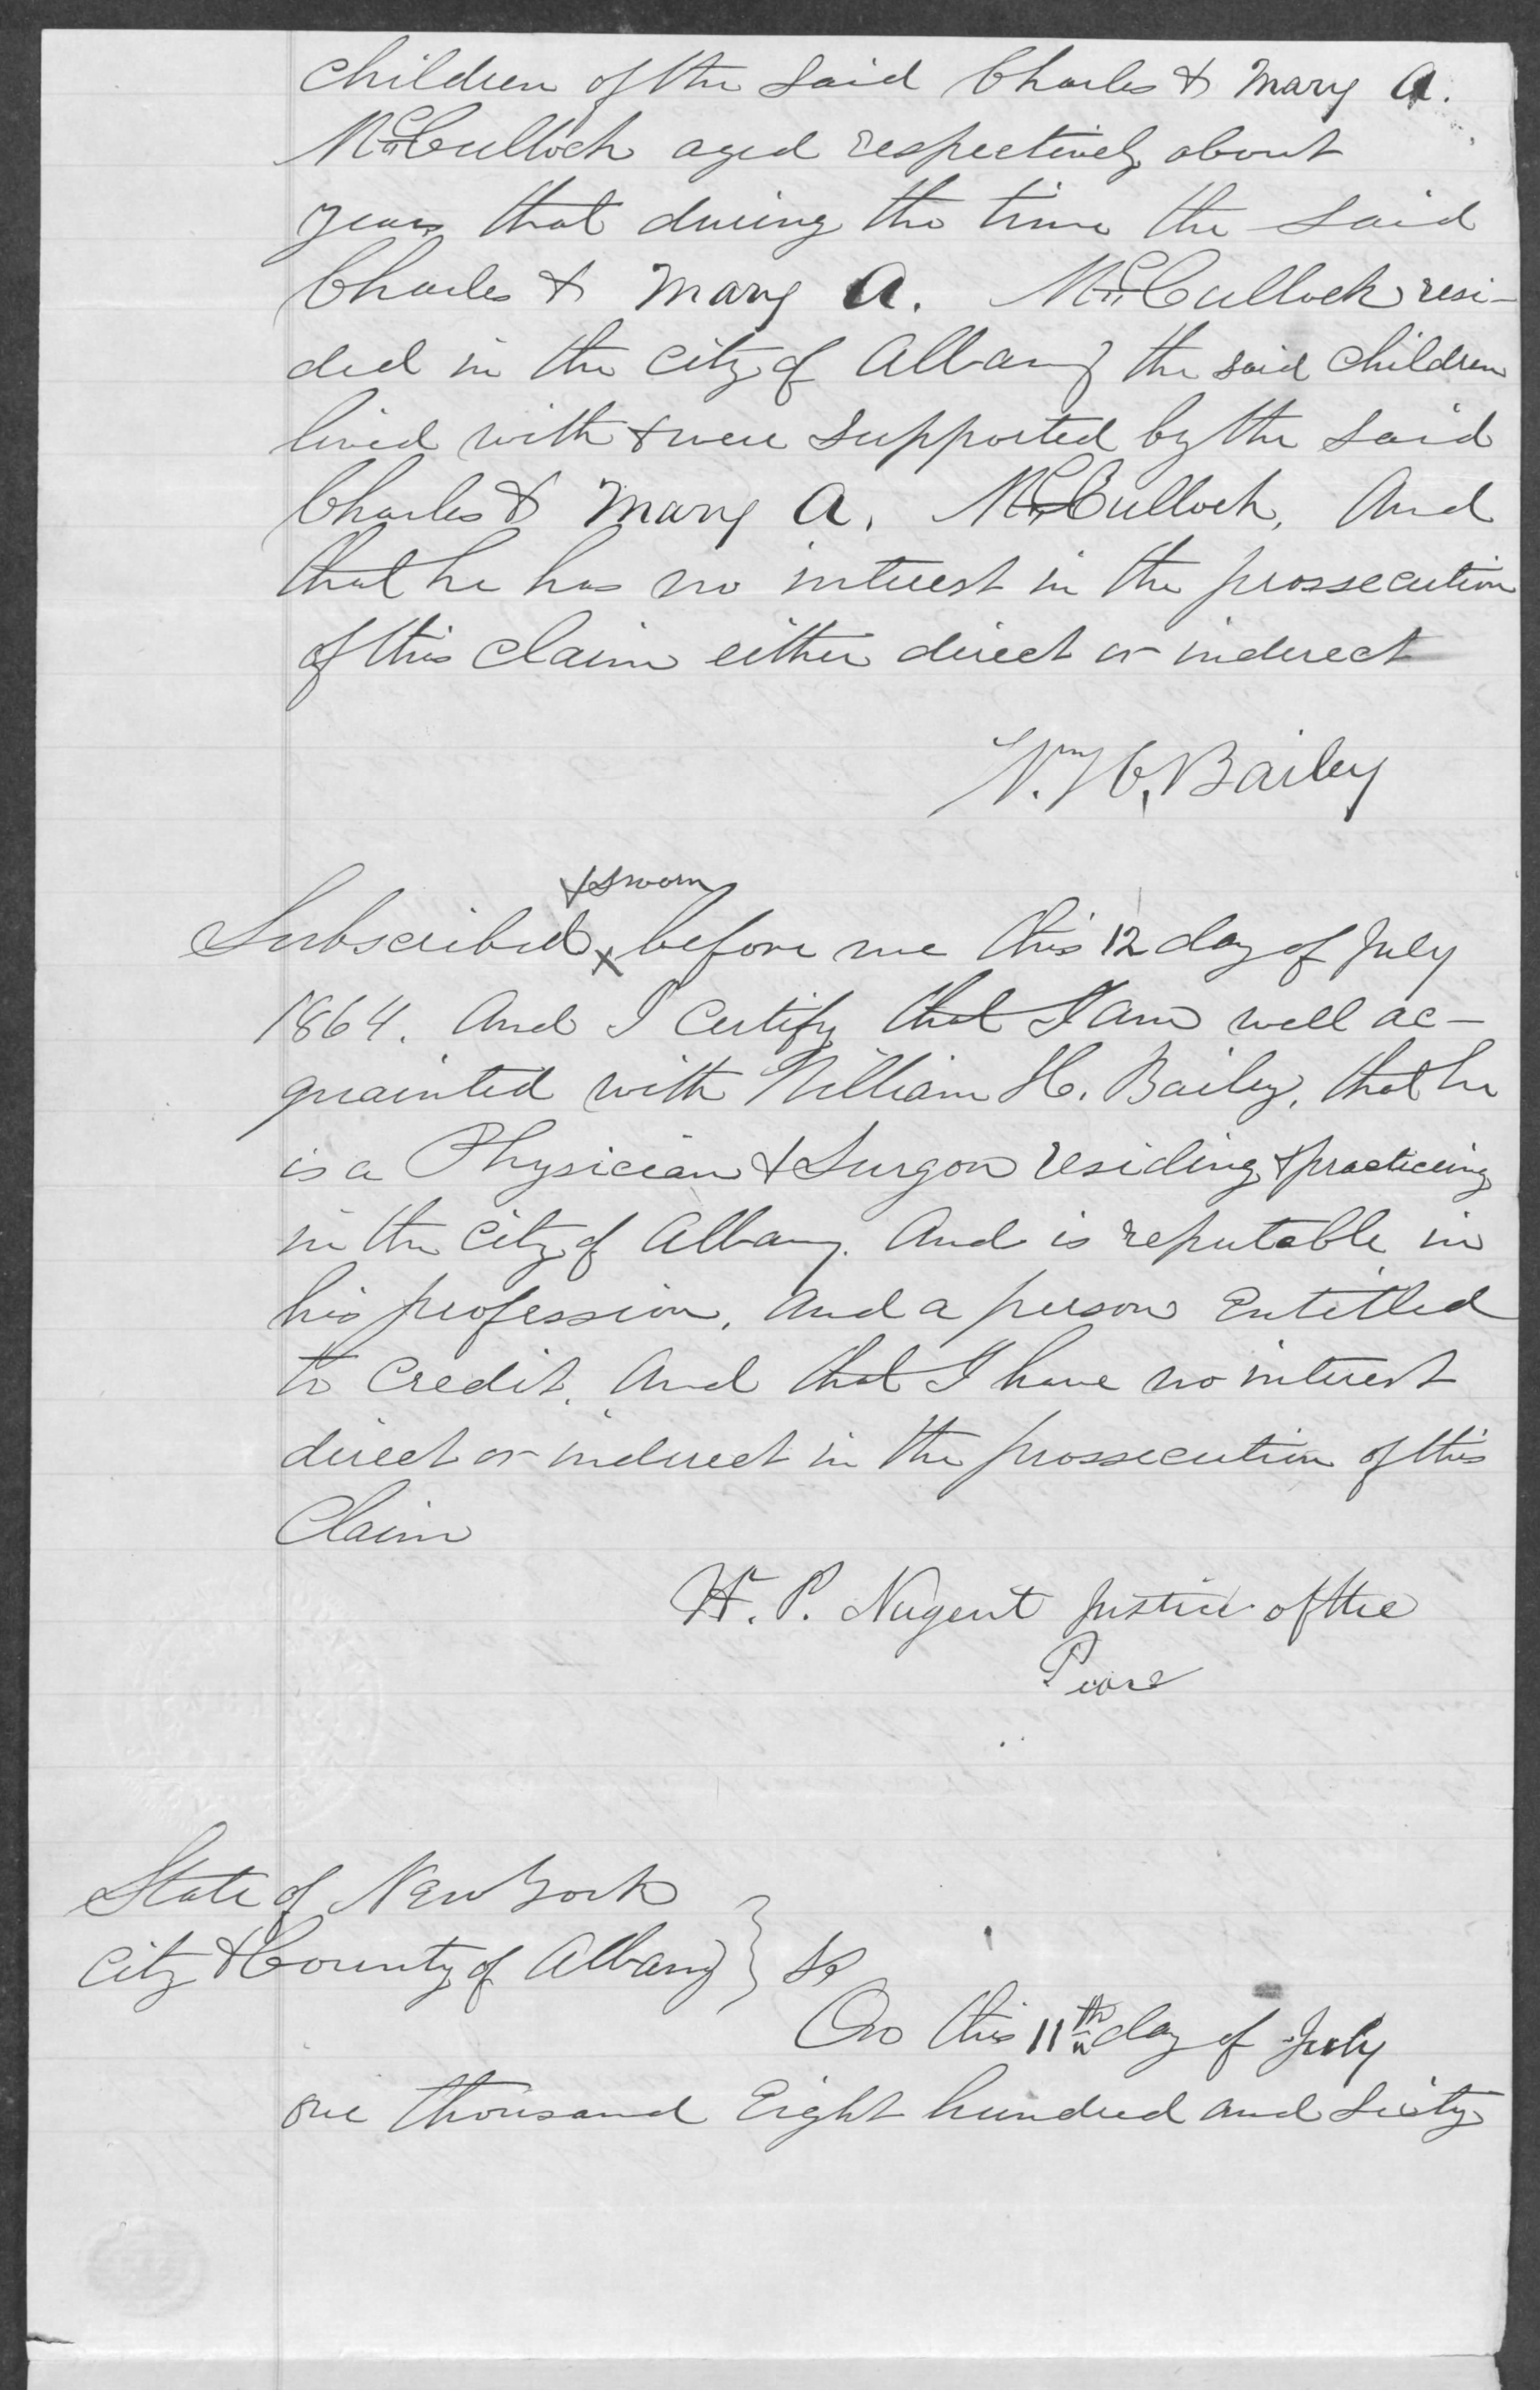 children of the said Charles & Mary A.
McCulloch aged respectively about
years that during the time the said
Charles & Mary A. McCulloch resi-
ded in the city of Albany the said children
lived with & were supported by the said
Charles & Mary A. McCulloch, And
that he has no interest in the prossecution
of this claim either direct or inderect
Wm H. Bailey
& sworn
Subscribed x before me this 12 day of July
1864. And I certify that I am well ac-
quainted with William H. Bailey, that he
is a Physician & Surgon residing & practiceing
in the city of Albany. And is reputable in
his profession, and a person Entitled
to credit. And that I have no interest
direct or inderect in the prossecution of this
Claim
W. P. Nugent Justice of the
Peace
State of New York
City & County of Albany } ss
On this 11th day of July
one thousand Eight hundred and sixty